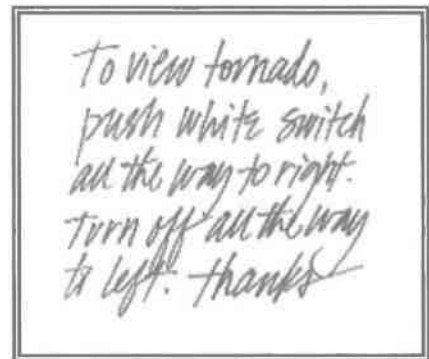 To view tornado,
push white switch
all the way to right.
Turn off all the way
to left. thanks